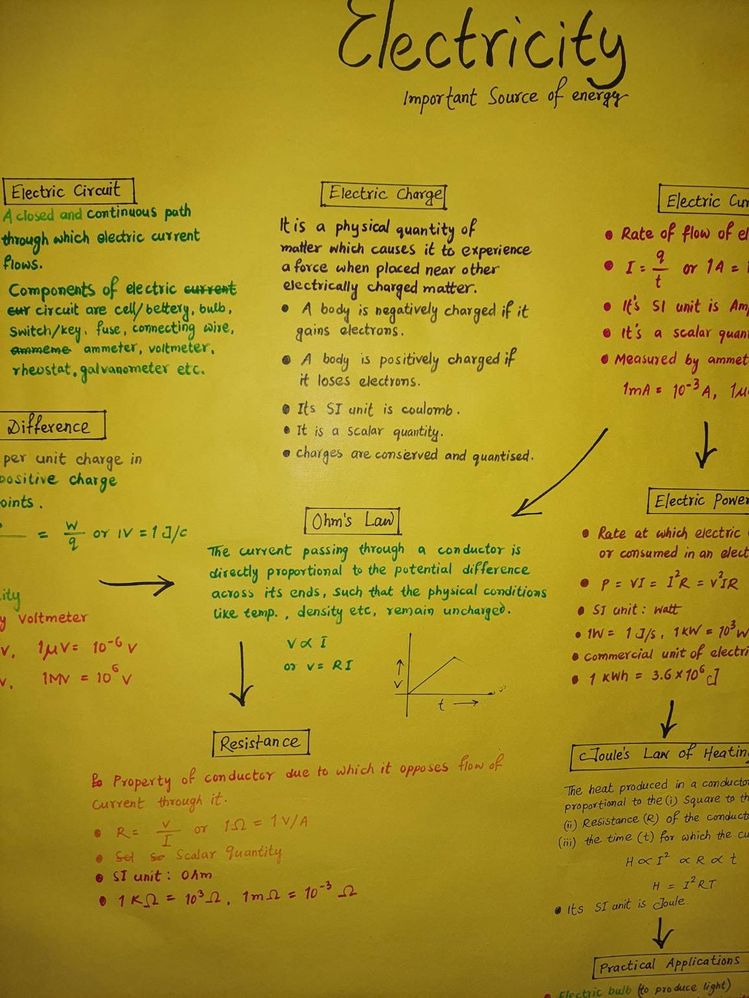 Electricity
Important Source of energy
Electric Circuit
A closed and continuous path
through which electric current
flows.
Components of electric current
cur circuit are cell/bettery, bulb,
switch/key, fuse, connecting wire,
ammeme ammeter, voltmeter,
rheostat, galvanometer etc.
Difference
per unit charge in
positive charge
oints.
= W/q or 1V = 1J/c
ity
y voltmeter
v, 1μV = 10⁻⁶ v
v, 1Mv = 10⁶ v
Electric Charge
It is a physical quantity of
matter which causes it to experience
a force when placed near other
electrically charged matter.
• A body is negatively charged if it
gains electrons.
• A body is positively charged if
it loses electrons.
• Its SI unit is coulomb.
• It is a scalar quantity.
• charges are conserved and quantised.
Ohm's Law
The current passing through a conductor is
directly proportional to the potential difference
across its ends, such that the physical conditions
like temp., density etc, remain uncharged.
V ∝ I
or v = RI
V →
t →
Resistance
Property of conductor due to which it opposes flow of
current through it.
• R = V/I or 1Ω = 1V/A
• Scalar Quantity
• SI unit : Ohm
• 1KΩ = 10³Ω, 1mΩ = 10⁻³ Ω
Electric Cur
• Rate of flow of el
• I = q/t or 1A =
• It's SI unit is Am
• It's a scalar quan
• Measured by ammet
1mA = 10⁻³ A, 1μ
Electric Power
• Rate at which electric
or consumed in an elect
• P = VI = I²R = v²IR
• SI unit : watt
• 1W = 1J/s, 1KW = 10³w
• commercial unit of electri
• 1 KWh = 3.6×10⁶ J
Joule's Law of Heating
The heat produced in a conductor
proportional to the (i) Square to th
(ii) Resistance (R) of the conduct
(iii) the time (t) for which the cu
H ∝ I² ∝ R ∝ t
H = I²RT
• Its SI unit is Joule
Practical Applications
• Electric bulb (to produce light)